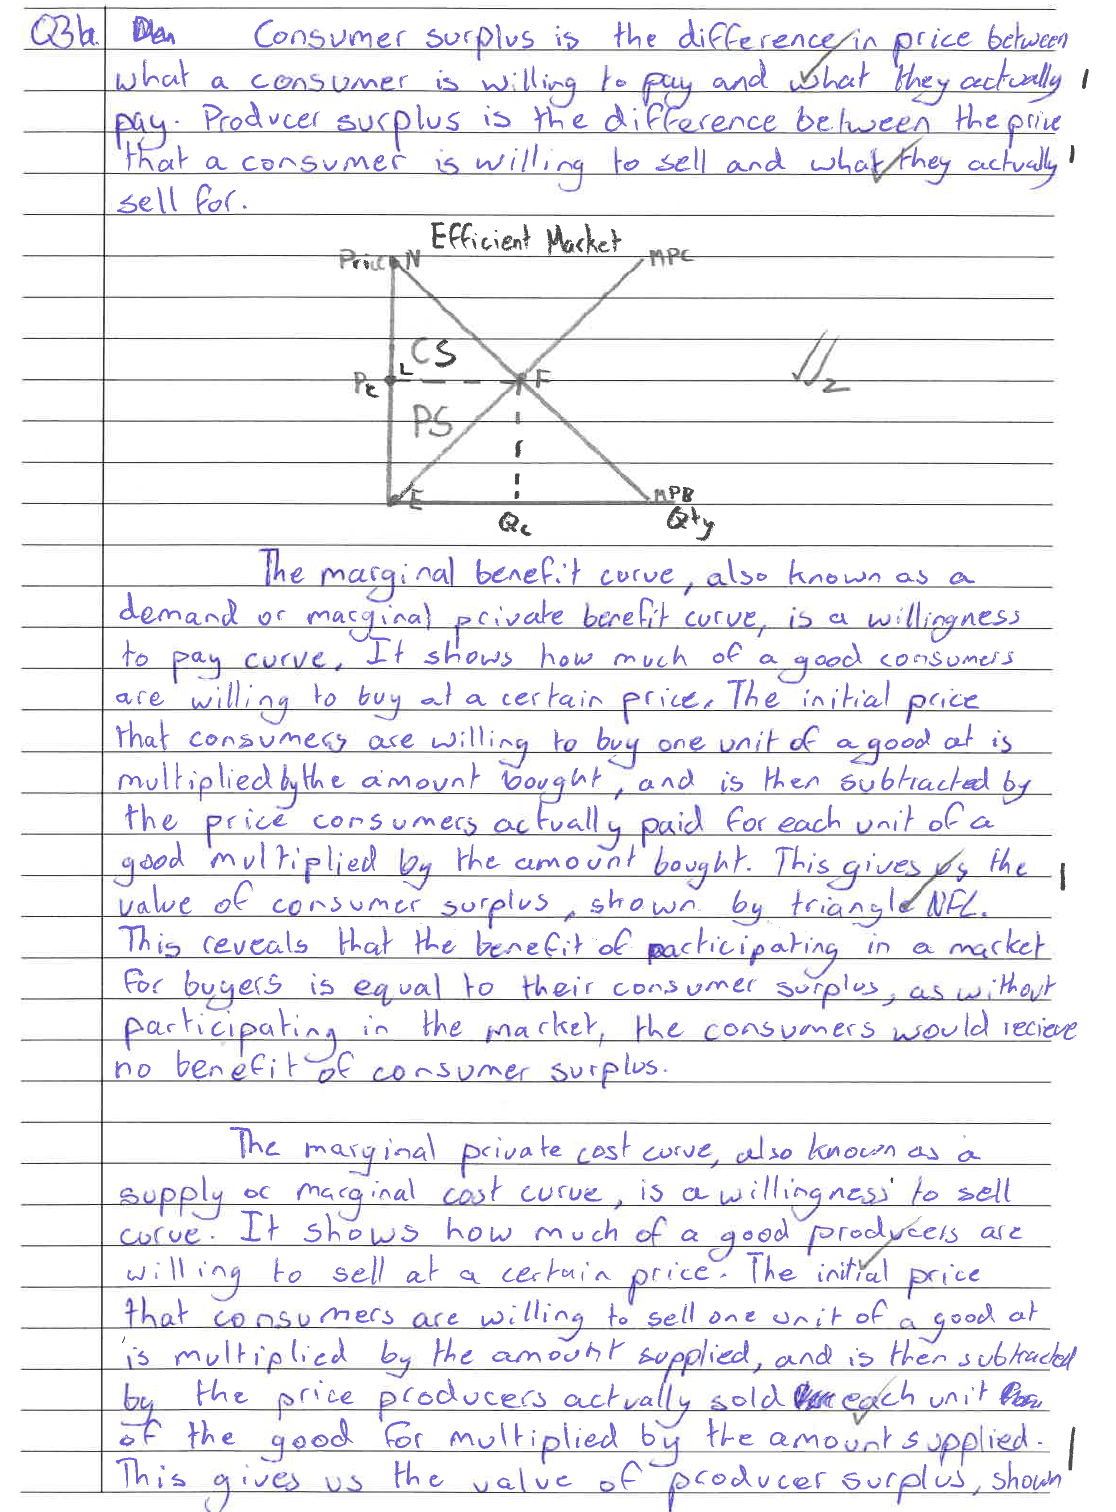 Q3b. Consumer surplus is the difference in price between
what a consumer is willing to pay and what they actually 1
pay. Producer surplus is the difference between the price
that a consumer is willing to sell and what they actually 1
sell for.
Efficient Market
Price N MPC
CS
Pe L F
PS
2
E MPB
Qe Qty
The marginal benefit curve, also known as a
demand or marginal private benefit curve, is a willingness
to pay curve. It shows how much of a good consumers
are willing to buy at a certain price. The initial price
that consumers are willing to buy one unit of a good at is
multiplied by the amount bought, and is then subtracted by
the price consumers actually paid for each unit of a
good multiplied by the amount bought. This gives us the 1
value of consumer surplus, shown by triangle NFL.
This reveals that the benefit of participating in a market
for buyers is equal to their consumer surplus, as without
participating in the market, the consumers would recieve
no benefit of consumer surplus.
The marginal private cost curve, also known as a
supply or marginal cost curve, is a willingness to sell
curve. It shows how much of a good producers are
willing to sell at a certain price. The initial price
that consumers are willing to sell one unit of a good at
is multiplied by the amount supplied, and is then subtracted
by the price producers actually sold each unit
of the good for multiplied by the amount supplied. 1
This gives us the value of producer surplus, shown